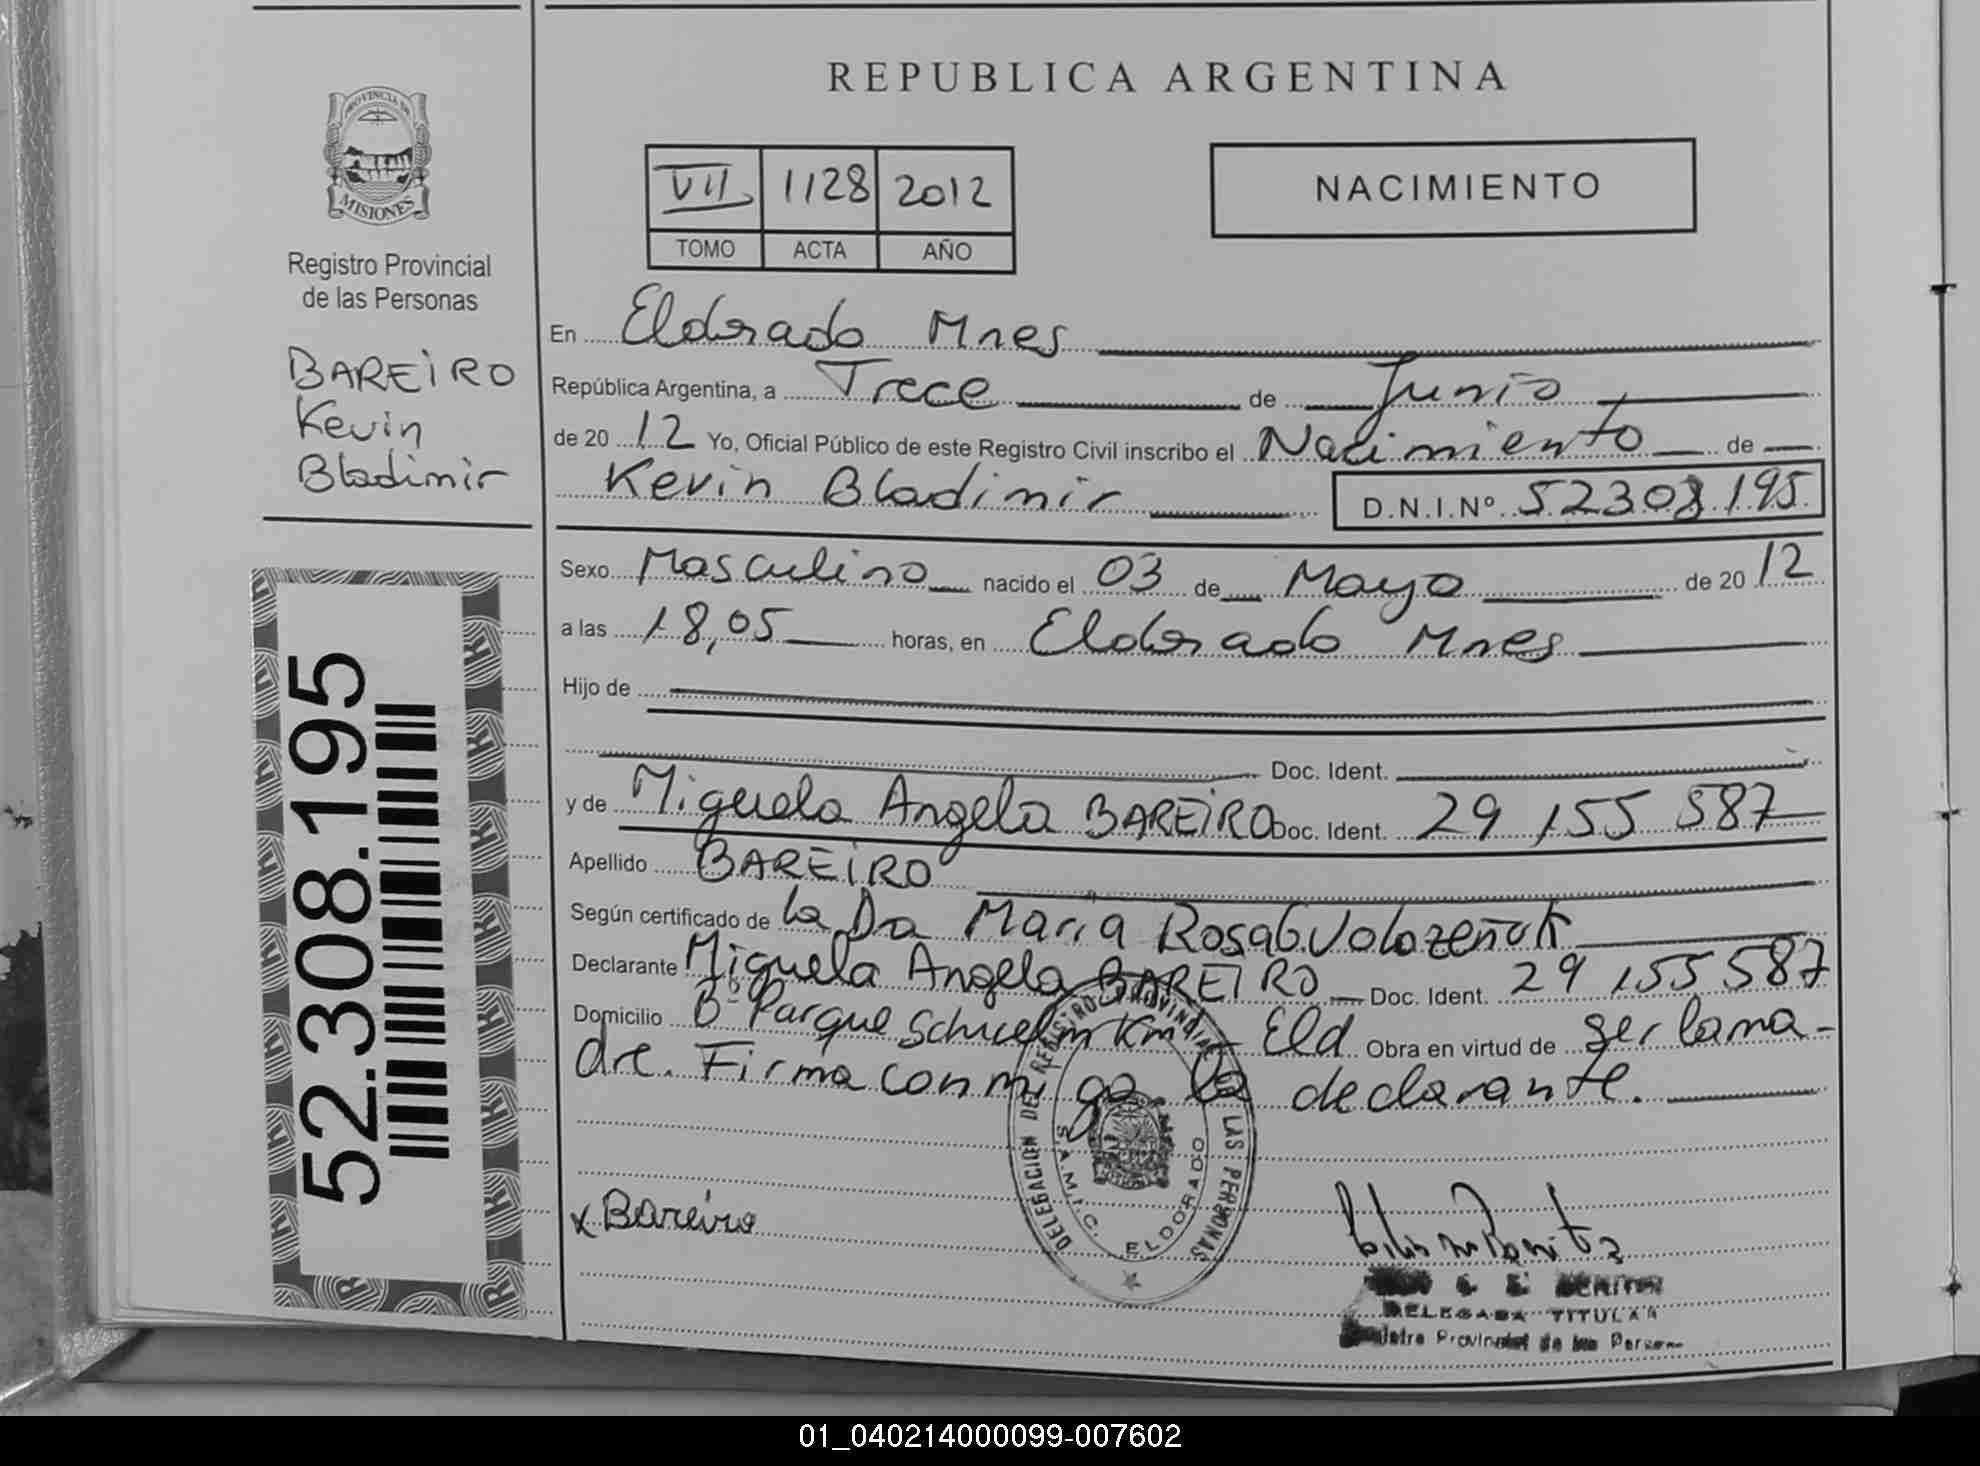 REPUBLICA ARGENTINA
PROVINCIA DE
MISIONES
Registro Provincial
de las Personas
BAREIRO
Kevin
Bladimir
52.308.195
VII 1128 2012
TOMO ACTA AÑO
NACIMIENTO
En Eldorado Mnes
República Argentina, a Trece de Junio
de 2012 Yo, Oficial Público de este Registro Civil inscribo el Nacimiento de
Kevin Bladimir D.N.I.Nº 52308195
Sexo Masculino nacido el 03 de Mayo de 2012
a las 18,05 horas, en Eldorado Mnes
Hijo de
Doc. Ident.
y de Miguela Angela BAREIRO Doc. Ident. 29 155 587
Apellido BAREIRO
Según certificado de la Dra Maria Rosa
Declarante Miguela Angela BAREIRO Doc. Ident. 29 155 587
Domicilio Bº Parque Schuelm Km Eld Obra en virtud de ser la ma-
dre. Firma conmigo la declarante.
DELEGACION DEL REGISTRO PROVINCIAL LAS PERSONAS
S.A.M.I.C. ELDORADO
x Bareiro
DELEGADA TITULAR
Provincial de las
01_040214000099-007602